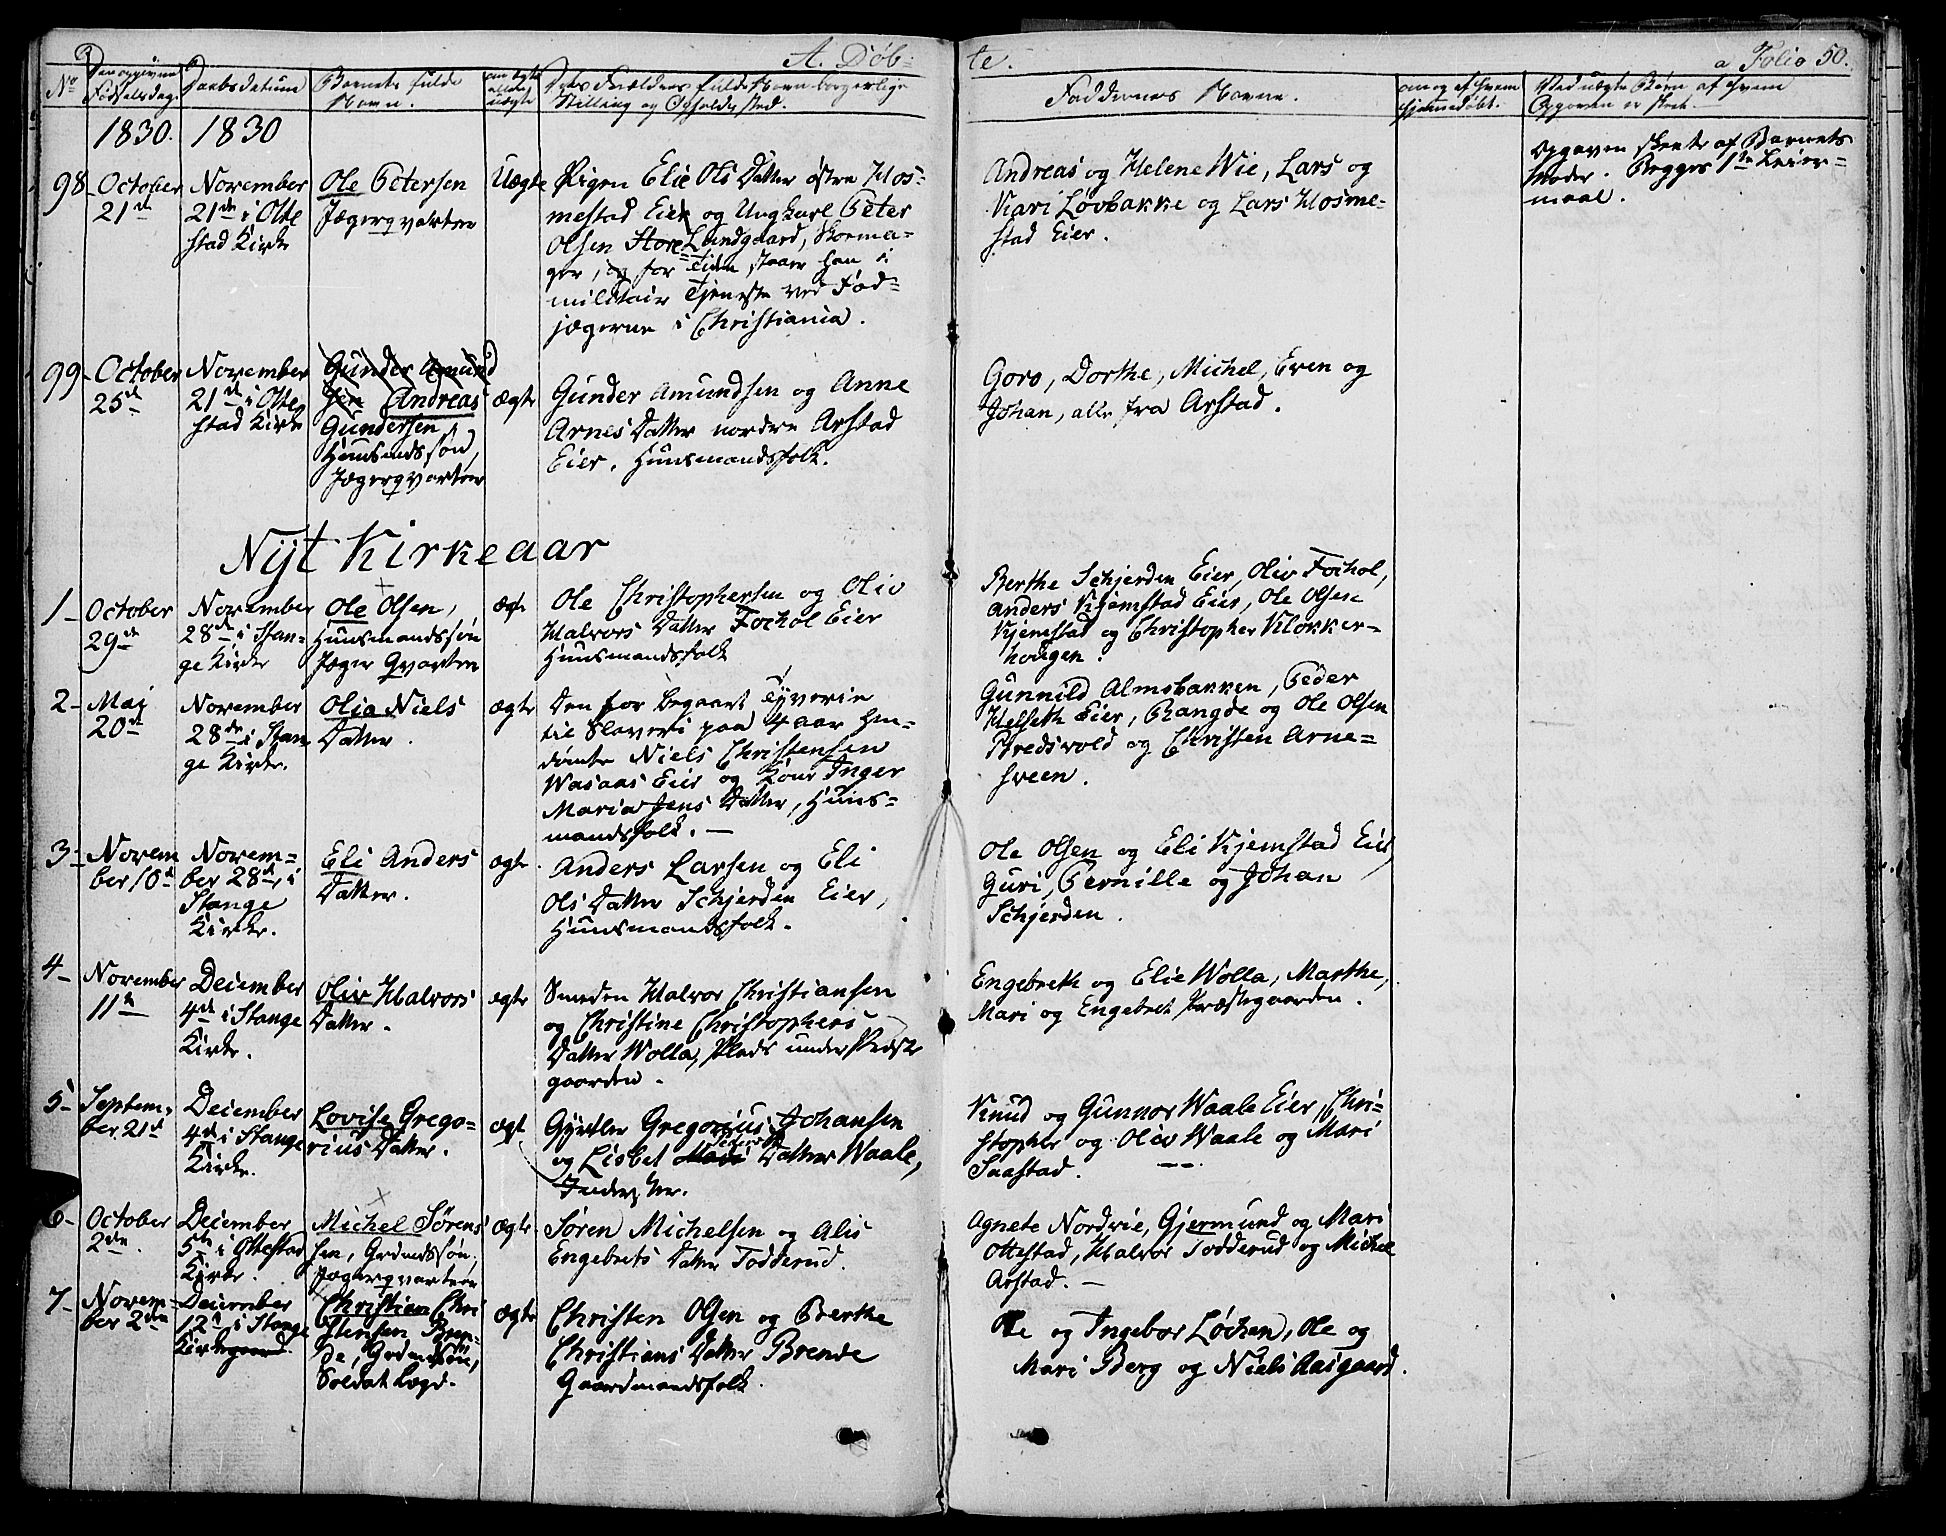 A. Døb-
te.
a Folio 50.
No
Den opgivne
Fødselsdag.
Daabsdatum
Barnets fulde
Navn.
om ægte
eller
uægte
Dets Forældres fulde Navn borgerlige
Stilling og Opholdssted.
Faddernes Navne.
om og af hvem
hjemmedøbt.
Ved uægte Børn af hvem
Opgaven er skeet.
1830.
1830
98-
October
21de
November
21de i Otte
stad Kirke
Ole Petersen
Jægerqvarteer
Uægte
Pigen Elie Ols Datter østre Hos-
mestad Eier og Ungkarl Peter
Olsen Store Lundgaard, Skoma-
ger, og for Tiden staaer han i
militair Tjeneste ved Fod-
jægerne i Christiania.
Andreas og Helene Wie, Lars og
Kari Løvbakke og Lars Hosme-
stad Eier.
Opgaven skeete af Barnets
Moder. Begges 1ste Leier-
maal.
99-
October
25de
November
21de i Otte
stad Kirke
Gunder Amund
sen Andreas
Gundersen,
Huusmandssøn,
Jægerqvarteer
ægte
Gunder Amundsen og Anne
Arnes Datter nordre Arstad
Eier, Huusmandsfolk.
Goro, Dorthe, Michel, Even og
Johan, alle fra Arstad.
Nyt Kirkeaar
1-
October
29de
November
28de i Stan-
ge Kirke
Ole Olsen,
Huusmandssøn
Jæger Qvarteer
ægte
Ole Christophersen og Oliv
Halvors Datter Fochol Eier
Huusmandsfolk
Berthe Schjerden Eier, Oliv Fochol,
Anders Kjemstad Eier, Ole Olsen
Kjemstad og Christopher Klokker-
hougen.
2-
Maj
20de
November
28de i Stan
ge Kirke.
Olia Niels
Datter.
ægte
Den for begaaet Tyverie
til Slaveri paa 4 aar hen-
dømte Niels Christensen
Wasaas Eier og Kone Inger
Maria Jens Datter, Huus-
mandsfolk. —
Gunnild Almsbakken, Peder
Helseth Eier, Rangde og Ole Olsen
Bredsvold og Christen Arne-
sveen.
3-
Novem
ber 10de
Novem-
ber 28de i
Stange
Kirke.
Eli Anders
Datter.
ægte.
Anders Larsen og Eli
Ols Datter Schjerden Eier,
Huusmandsfolk.
Ole Olsen og Eli Kjemstad Eier,
Guri, Pernille og Johan
Schjerden.
4-
November
11te
December
4de i Stange
Kirke.
Oliv Halvors
Datter.
ægte
Smeden Halvor Christiansen
og Christine Christophers
Datter Wolla, Plads under Præste
gaarden.
Engebreth og Elie Wolla, Marthe,
Mari og Engebret Præstegaarden.
5-
Septem-
ber 21de
December
4de i Stange
Kirke.
Lovise Grego-
rius Datter.
ægte
Gjørtler Gregorius Johansen
og Lisbet Peders Datter Waale,
Inderster.
Knud og Gunnor Waale Eier, Chri-
stopher og Oliv Waale og Mari
Saastad.
6-
October
2den.
December
5te i Ottestad
Kirke.
Michel Sørens
sen, Grdmdssøn.
Jægerqvarteer
ægte
Søren Michelsen og Alis
Engebrets Datter Todderud.
Agnete Nordvie, Gjermund og Mari
Ottestad, Halvor Todderud og Michel
Arstad. —
7-
Novem-
ber 2den
December
12te i Stange
Kirke
Christian Chri
stensen Bren-
de, Grdmdssøn,
Soldat Lægd.
ægte
Christen Olsen og Berthe
Christians Datter Brende
Gaardmandsfolk.
Ole og Ingebor Løchen, Ole og
Mari Berg og Niels Aasgaard.